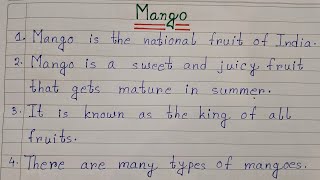 Mango
1. Mango is the national fruit of India.
2. Mango is a sweet and juicy fruit
that gets mature in summer.
3. It is known as the king of all
fruits.
4. There are many types of mangoes.